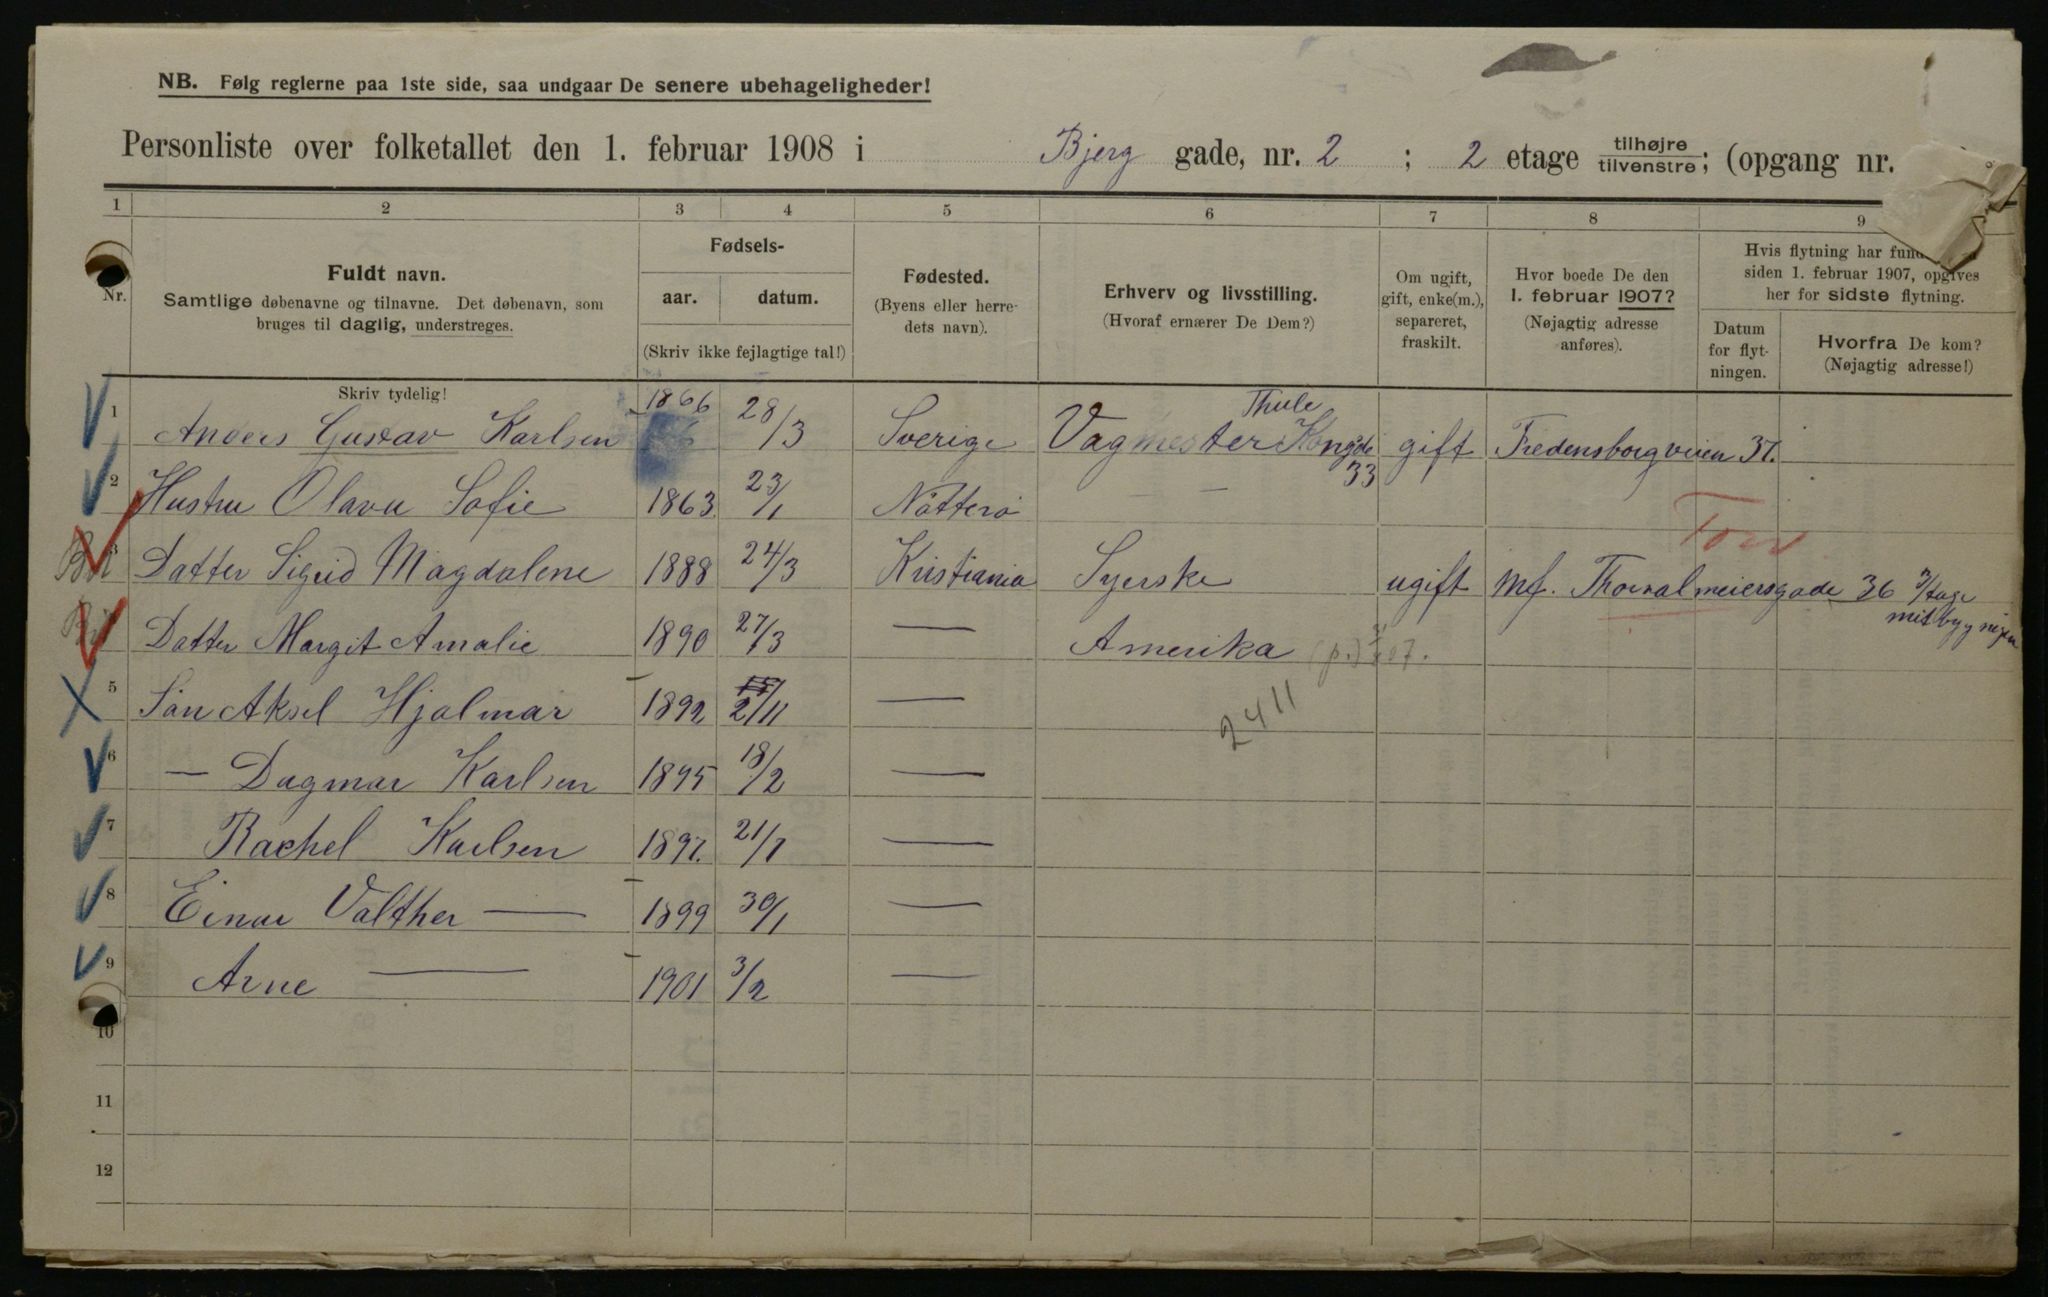 NB. Følg reglerne paa 1ste side, saa undgaar De senere ubehageligheder!
Personliste over folketallet den 1. februar 1908 i Bjerg gade, nr. 2 ; 2 etage tilhøjre tilvenstre; (opgang nr.
1 2 3 4 5 6 7 8 9
Nr.
Fuldt navn.
Samtlige døbenavne og tilnavne. Det døbenavn, som
bruges til daglig, understreges.
Fødsels-
aar. datum.
(Skriv ikke fejlagtige tal!)
Fødested.
(Byens eller herre-
dets navn).
Erhverv og livsstilling.
(Hvoraf ernærer De Dem?)
Om ugift,
gift, enke(m.),
separeret,
fraskilt.
Hvor boede De den
1. februar 1907?
(Nøjagtig adresse
anføres).
Hvis flytning har
siden 1. februar 1907, opgives
her for sidste flytning.
Datum
for flyt-
ningen.
Hvorfra De kom?
(Nøjagtig adresse!)
Skriv tydelig!
1 Anders Gustav Karlsen 1866 28/3 Sverige Vagmester Thule Kongsgde 33 gift Fredensborgveien 37.
2 Hustru Olava Sofie 1863 23/1 Nötterö — —
3 Datter Sigrid Magdalene 1888 24/3 Kristiania Syerske ugift Mf. Thorvalmeiersgade 36 3/tage
mitbygnigen
Datter Margit Amalie 1890 27/3 — Amerika (p.) 07.
5 Sön Aksel Hjalmar 1892 27/11 —
2411
6 — Dagmar Karlsen 1895 18/2 —
7 Rachel Karlsen 1897. 21/7 —
8 Einar Valther — 1899 30/1 —
9 Arne — 1901 3/2 —
10
11
12